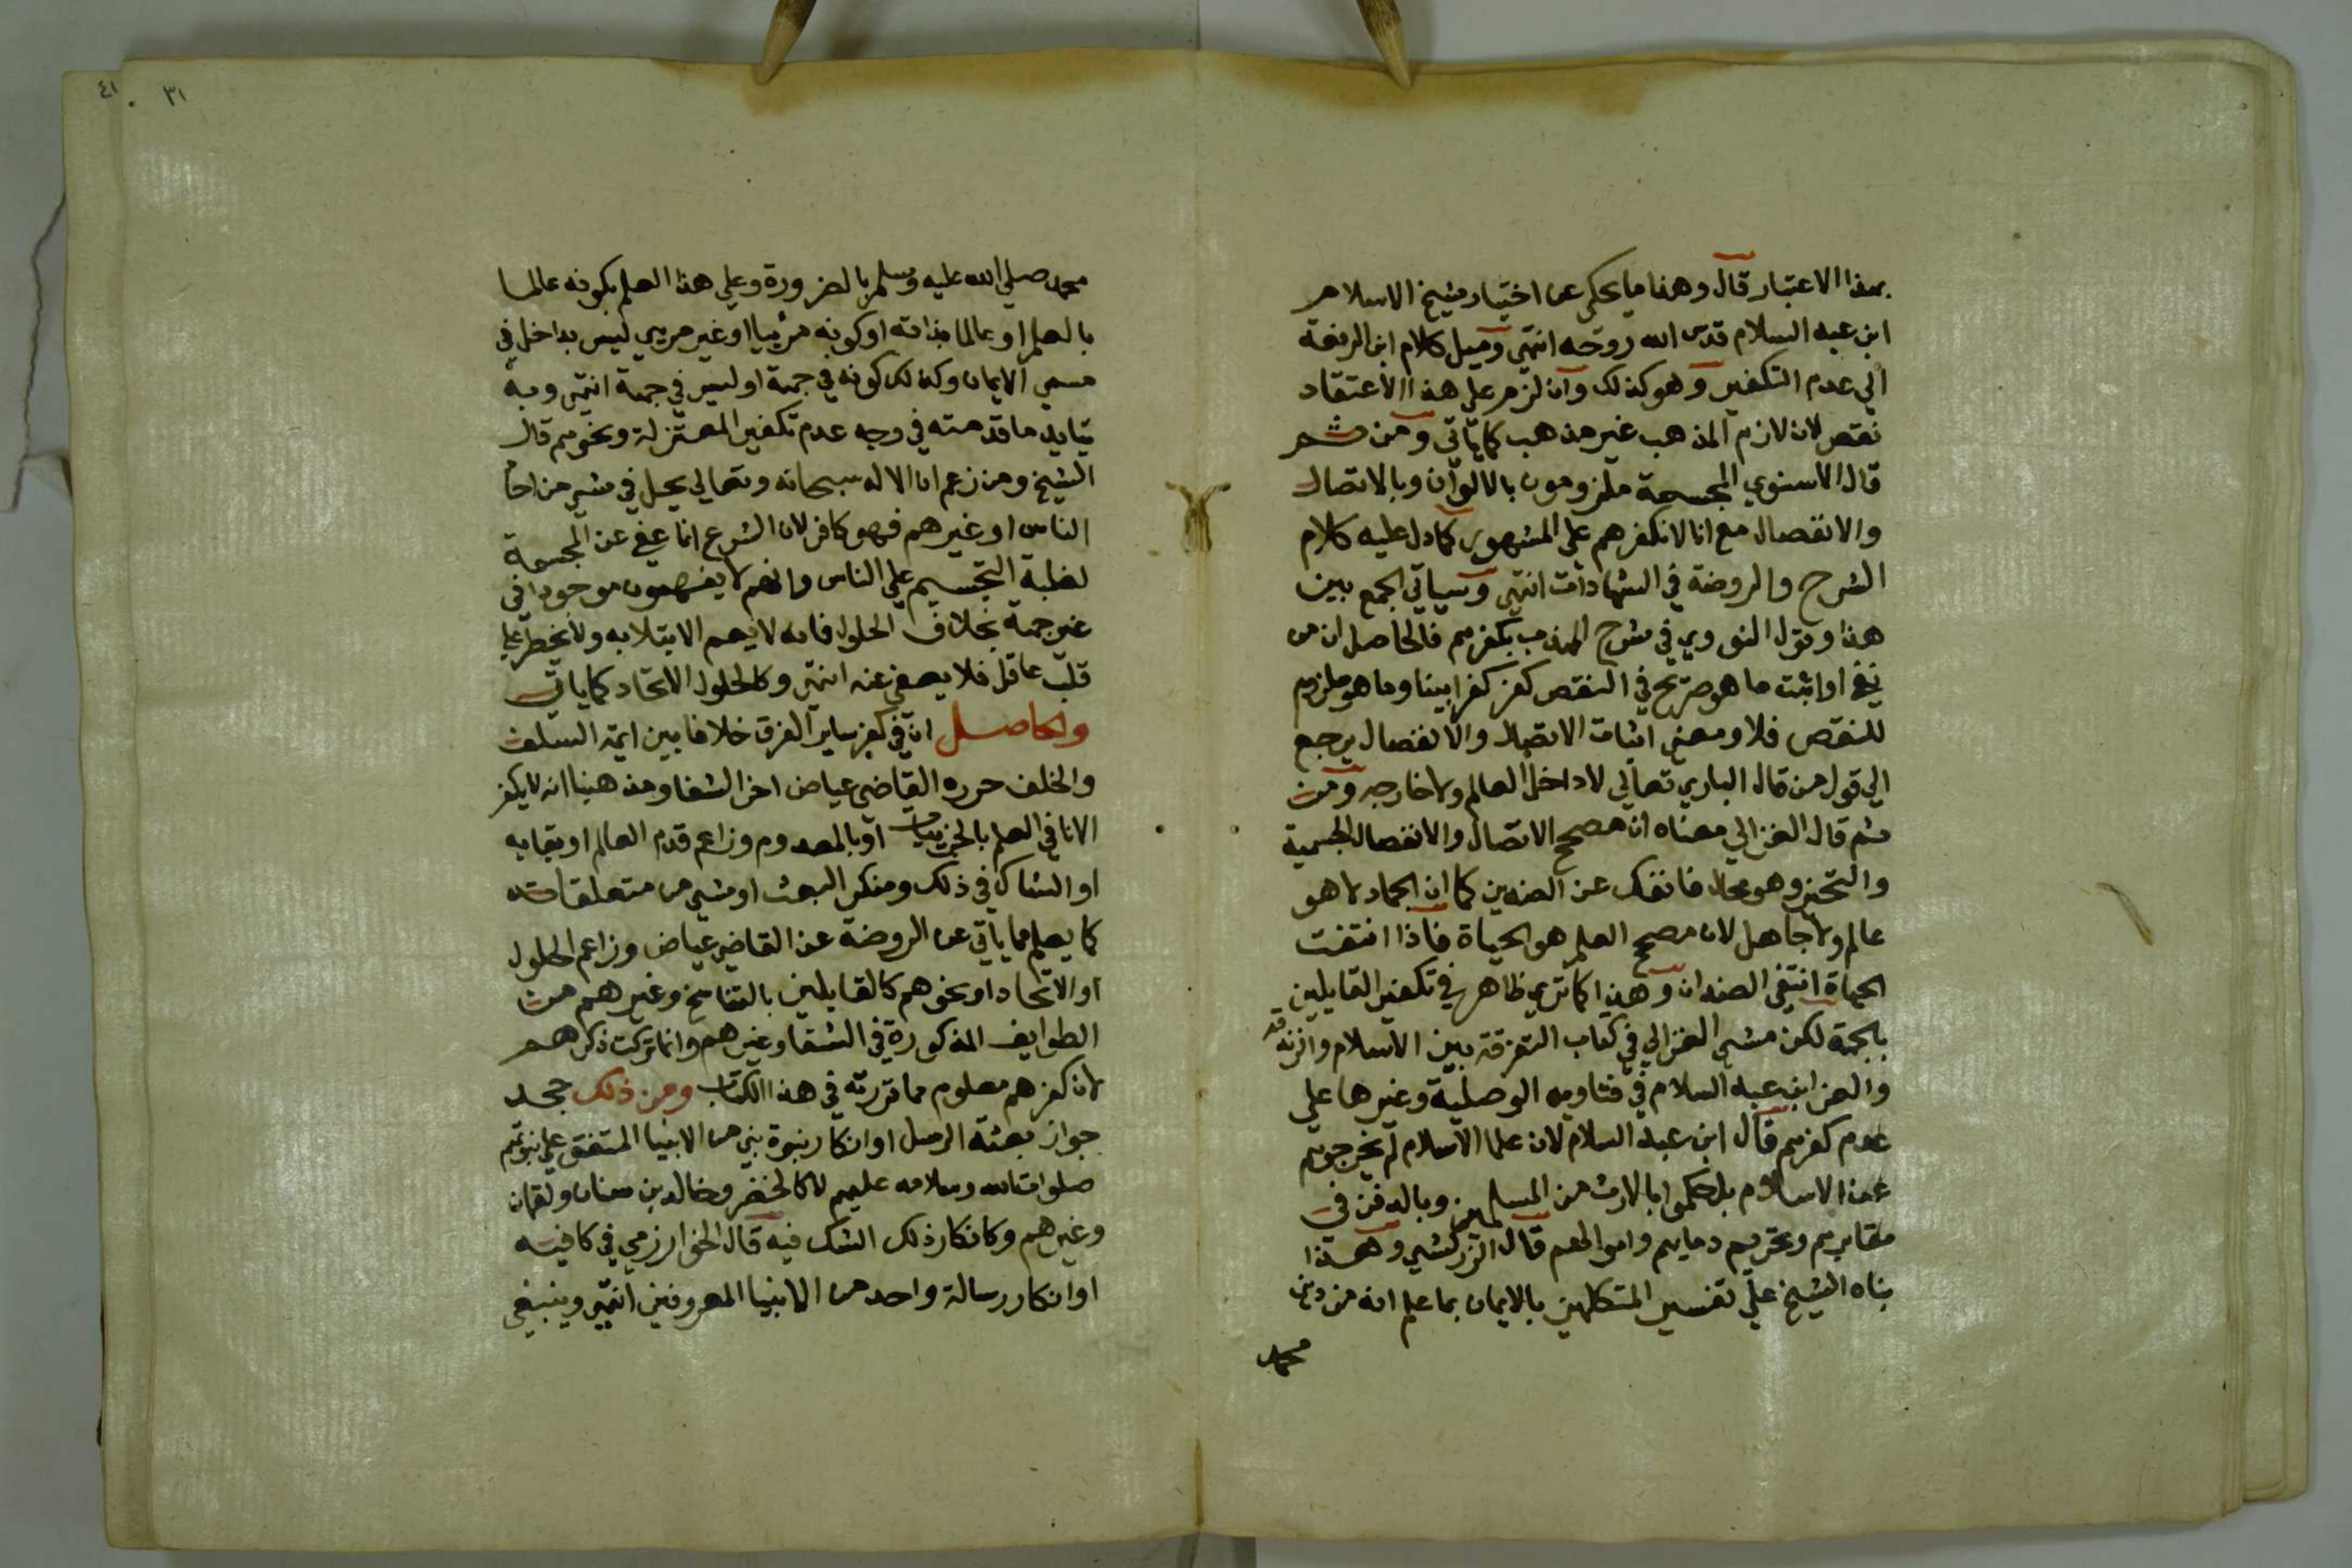 بهذا الاعتبار قال وهذا ما يحكى عن اختيار شيخ الاسلام
ابن عبد السلام قدس الله روحه انتهى وميل كلام ابن الرفعة
الي عدم التكفير وهو كذلك وان لزم علي هذا الاعتقاد
نقص لان لازم المذهب غير مذهب كما ياتي ومن ثم
قال الاسنوي المجسمة ملزومون بالالوان وبالاتصال
والانفصال مع انا لا نكفرهم علي المشهور كما دل عليه كلام
الشرح والروضة في الشهادات انتهى وسياتي الجمع بين
هذا وقول النووي في شرح المهذب بكفرهم فالحاصل ان من
نفي او اثبت ما هو صريح في النقص كفر كفرا بينا وما هو ملزوم
للنقص فلا ومعني اثبات الاتصال والانفصال يرجع
الي قول من قال الباري تعالي لا داخل العالم ولا خارجه ومن
ثم قال الغزالي معناه ان مصحح الاتصال والانفصال الجسمية
والتحيز وهو محال فانفك عن الضدين كما ان الجماد لا هو
عالم ولا جاهل لان مصحح العلم هو الحياة فاذا انتفت
الحياة انتفي الضدان وهذا كما تري ظاهر في تكفير القايلين
بالجهة لكن مشي الغزالي في كتاب التفرقة بين الاسلام والزندقة
والعز ابن عبد السلام في فتاويه الموصلية وغيرها علي
عدم كفرهم قال ابن عبد السلام لان علما الاسلام لم يخرجوهم
عن الاسلام بل حكموا بالارث من المسلمين وبالدفن في
مقابرهم وتحريم دمايهم واموالهم قال الزركشي وهذا
بناه الشيخ علي تفسير المتكلمين بالايمان بما علم انه من دين
محمد
٤١ ٣١
محمد صلي الله عليه وسلم بالضرورة وعلي هذا العلم بكونه عالما
بالعلم او عالما بذاته او كونه مرئيا او غير مريي ليس بداخل في
مسمي الايمان وكذلك كونه في جهة او ليس في جهة انتهى وبه
يتايد ما قدمته في وجه عدم تكفير المعتزلة ونحوهم قال
الشيخ ومن زعم ان الاله سبحانه وتعالي يحل في شي من احاد
الناس او غيرهم فهو كافر لان الشرع انما عفي عن المجسمة
لغلبة التجسيم علي الناس وانهم لا يفهمون موجودا في
غير جهة بخلاف الحلول فانه لا يعم الابتلا به ولا يخطر علي
قلب عاقل فلا يعفي عنه انتهى وكالحلول الاتحاد كما ياتي
والحاصل ان في كفر ساير الفرق خلافا بين ايمة السلف
والخلف حرره القاضي عياض اخر الشفا ومذهبنا انه لا يكفر
الا نافي العلم بالجزييات او بالمعدوم وزاعم قدم العالم او بقايه
او الشاك في ذلك ومنكر البعث او شي من متعلقاته
كما يعلم مما ياتي عن الروضة عن القاضي عياض وزاعم الحلول
او الاتحاد او نحوهم كالقايلين بالتناسخ وغيرهم من
الطوايف المذكورة في الشفا وغيرهم وانما تركت ذكرهم
لان كفرهم معلوم مما قررته في هذا الكتاب ومن ذلك جحد
جواز بعثة الرسل او انكار نبوة نبي من الانبيا المتفق علي نبوتهم
صلوات الله وسلامه عليهم لا كالخضر وخالد بن سنان ولقمان
وغيرهم وكانكار ذلك الشك فيه قال الخوارزمي في كافيه
او انكار رسالة واحد من الانبيا المعروفين انتهى وينبغي